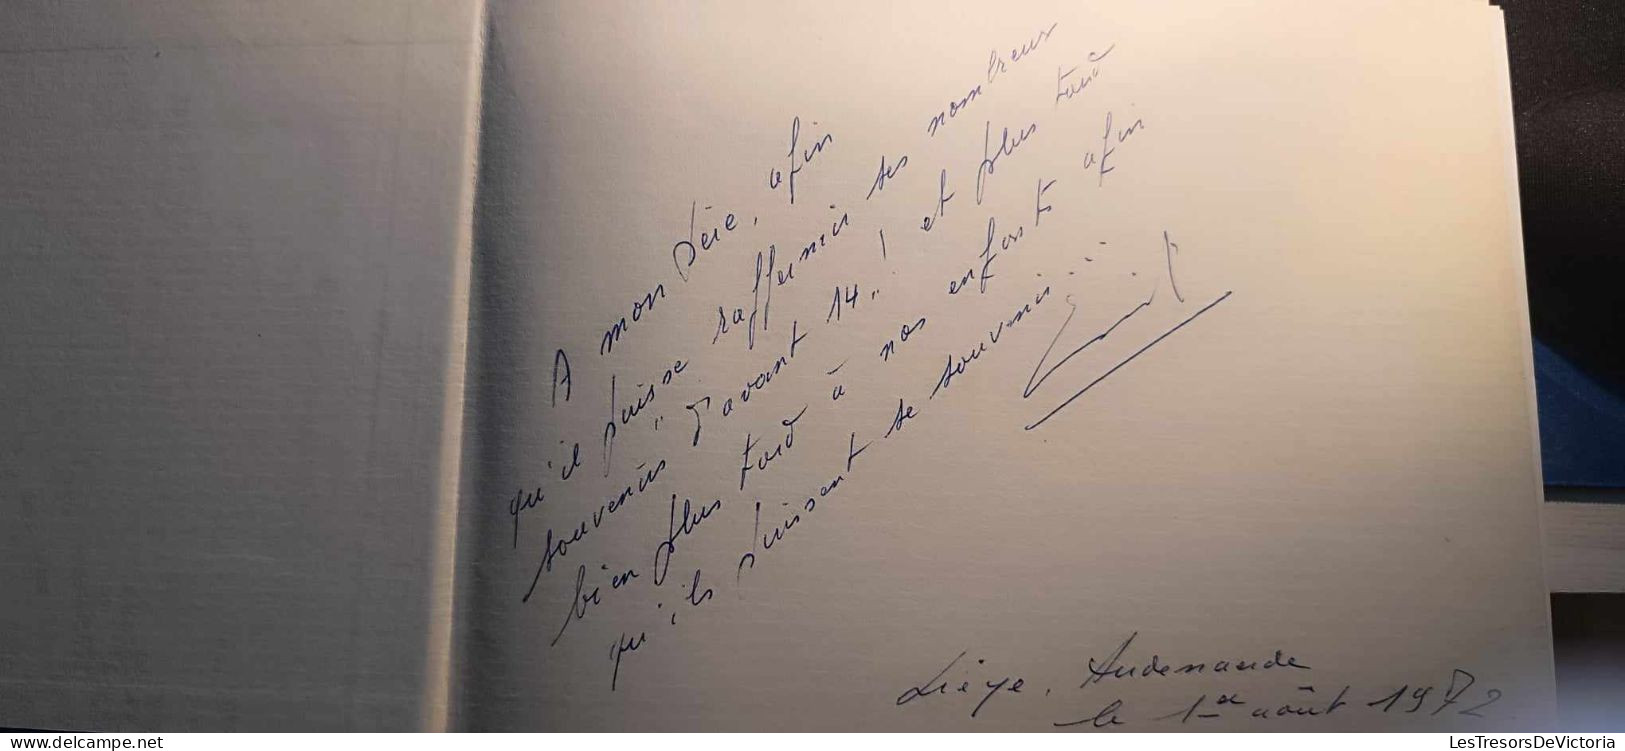 A mon Père, afin
qu'il puisse raffermir ses nombreux
souvenirs "d'avant 14"! et plus tard
bien plus tard à nos enfants afin
qu'ils puissent se souvenir...
Liège, Audenaarde
le 1er août 1972
LesTresorsDeVictoria